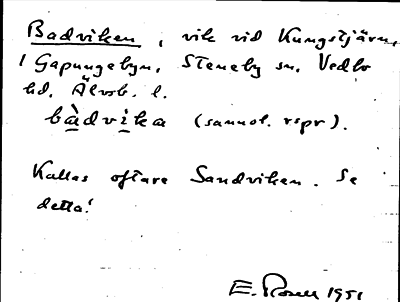 Badviken, vik vid Kungstjärn,
i Gapungebyn, Steneby sn, Vedbo
hd, Älvsb. l.
bàdvika (sannol. rspr).
Kallas oftare Sandviken. Se
detta!
E. Rosell 1951